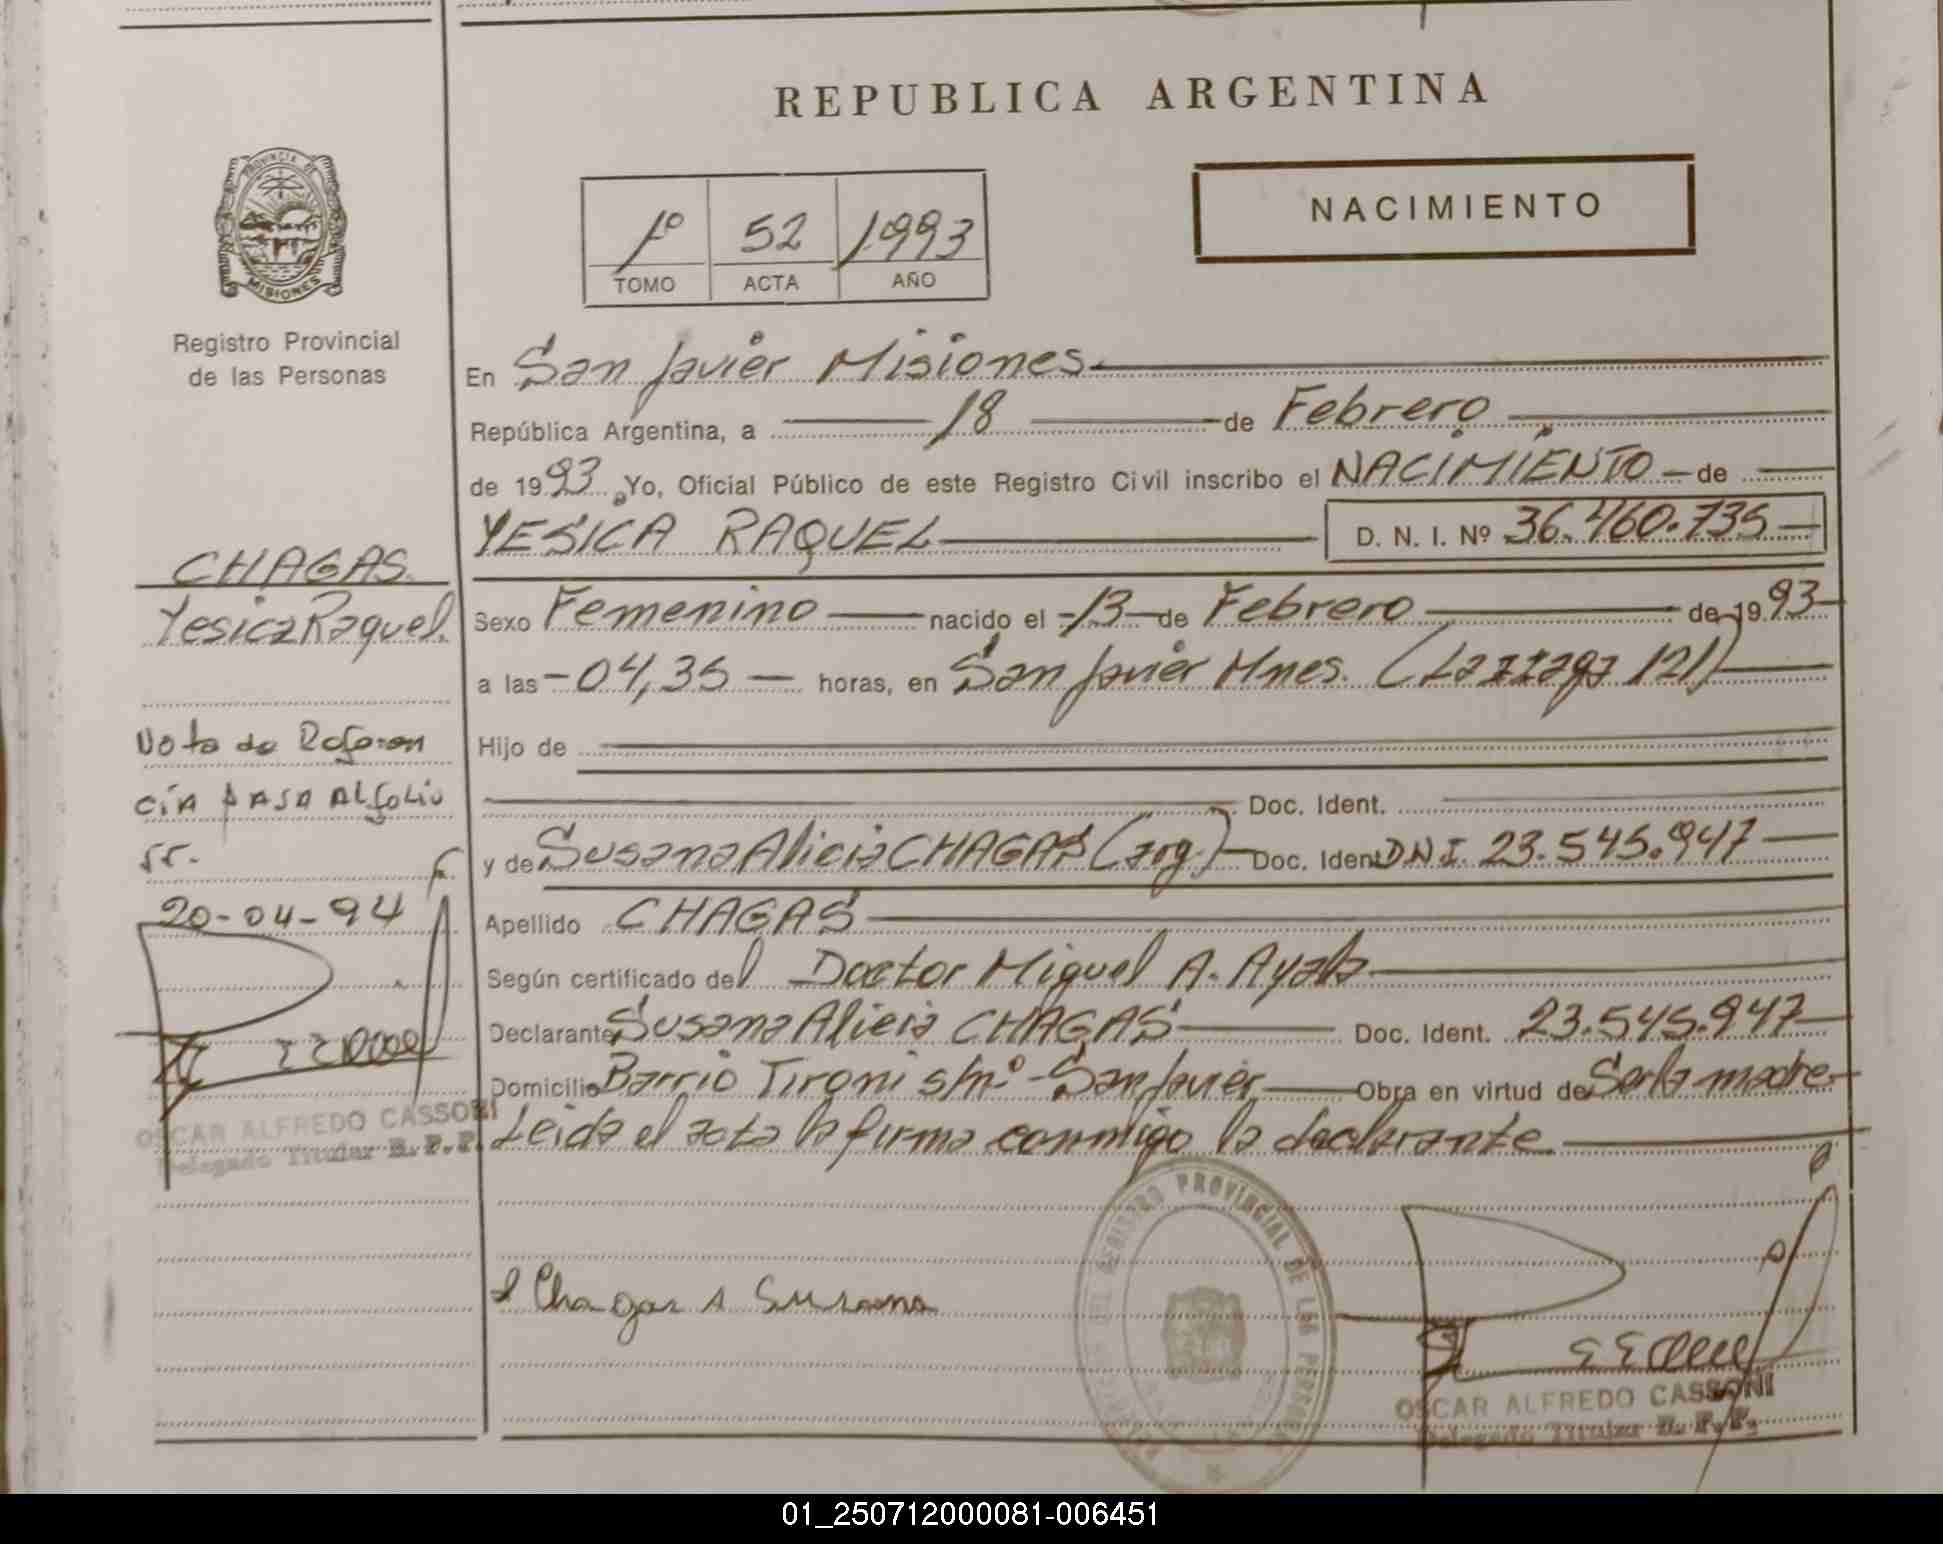 REPUBLICA ARGENTINA
PROVINCIA DE
MISIONES
NACIMIENTO
1º 52 1993
TOMO ACTA AÑO
Registro Provincial
de las Personas
En San Javier Misiones
República Argentina, a 18 de Febrero
de 1993 Yo, Oficial Público de este Registro Civil inscribo el NACIMIENTO de
YESICA RAQUEL D. N. I. Nº 36.460.735
CHAGAS
Yesica Raquel.
Sexo Femenino nacido el 13 de Febrero de 1993
a las 04,35 horas, en San Javier Mnes. (          121)
Nota de Referen
cia PASA AL folio
20-04-94
Hijo de
Doc. Ident.
y de Susana Alicia CHAGAS (arg.) Doc. Ident DNI. 23.545.947
Apellido CHAGAS
Según certificado del Doctor Miguel A. Ayala
Declarante Susana Alicia CHAGAS Doc. Ident. 23.545.947
Domicilio Barrio Tironi s/nº - San Javier Obra en virtud de Ser la madre
Leida el acta la firma conmigo la declarante
OSCAR ALFREDO CASSONI
Delegado Titular R. P. P.
REGISTRO PROVINCIAL DE LAS PERSONAS
Chagas A Susana
OSCAR ALFREDO CASSONI
Delegado Titular R. P. P.
01_250712000081-006451